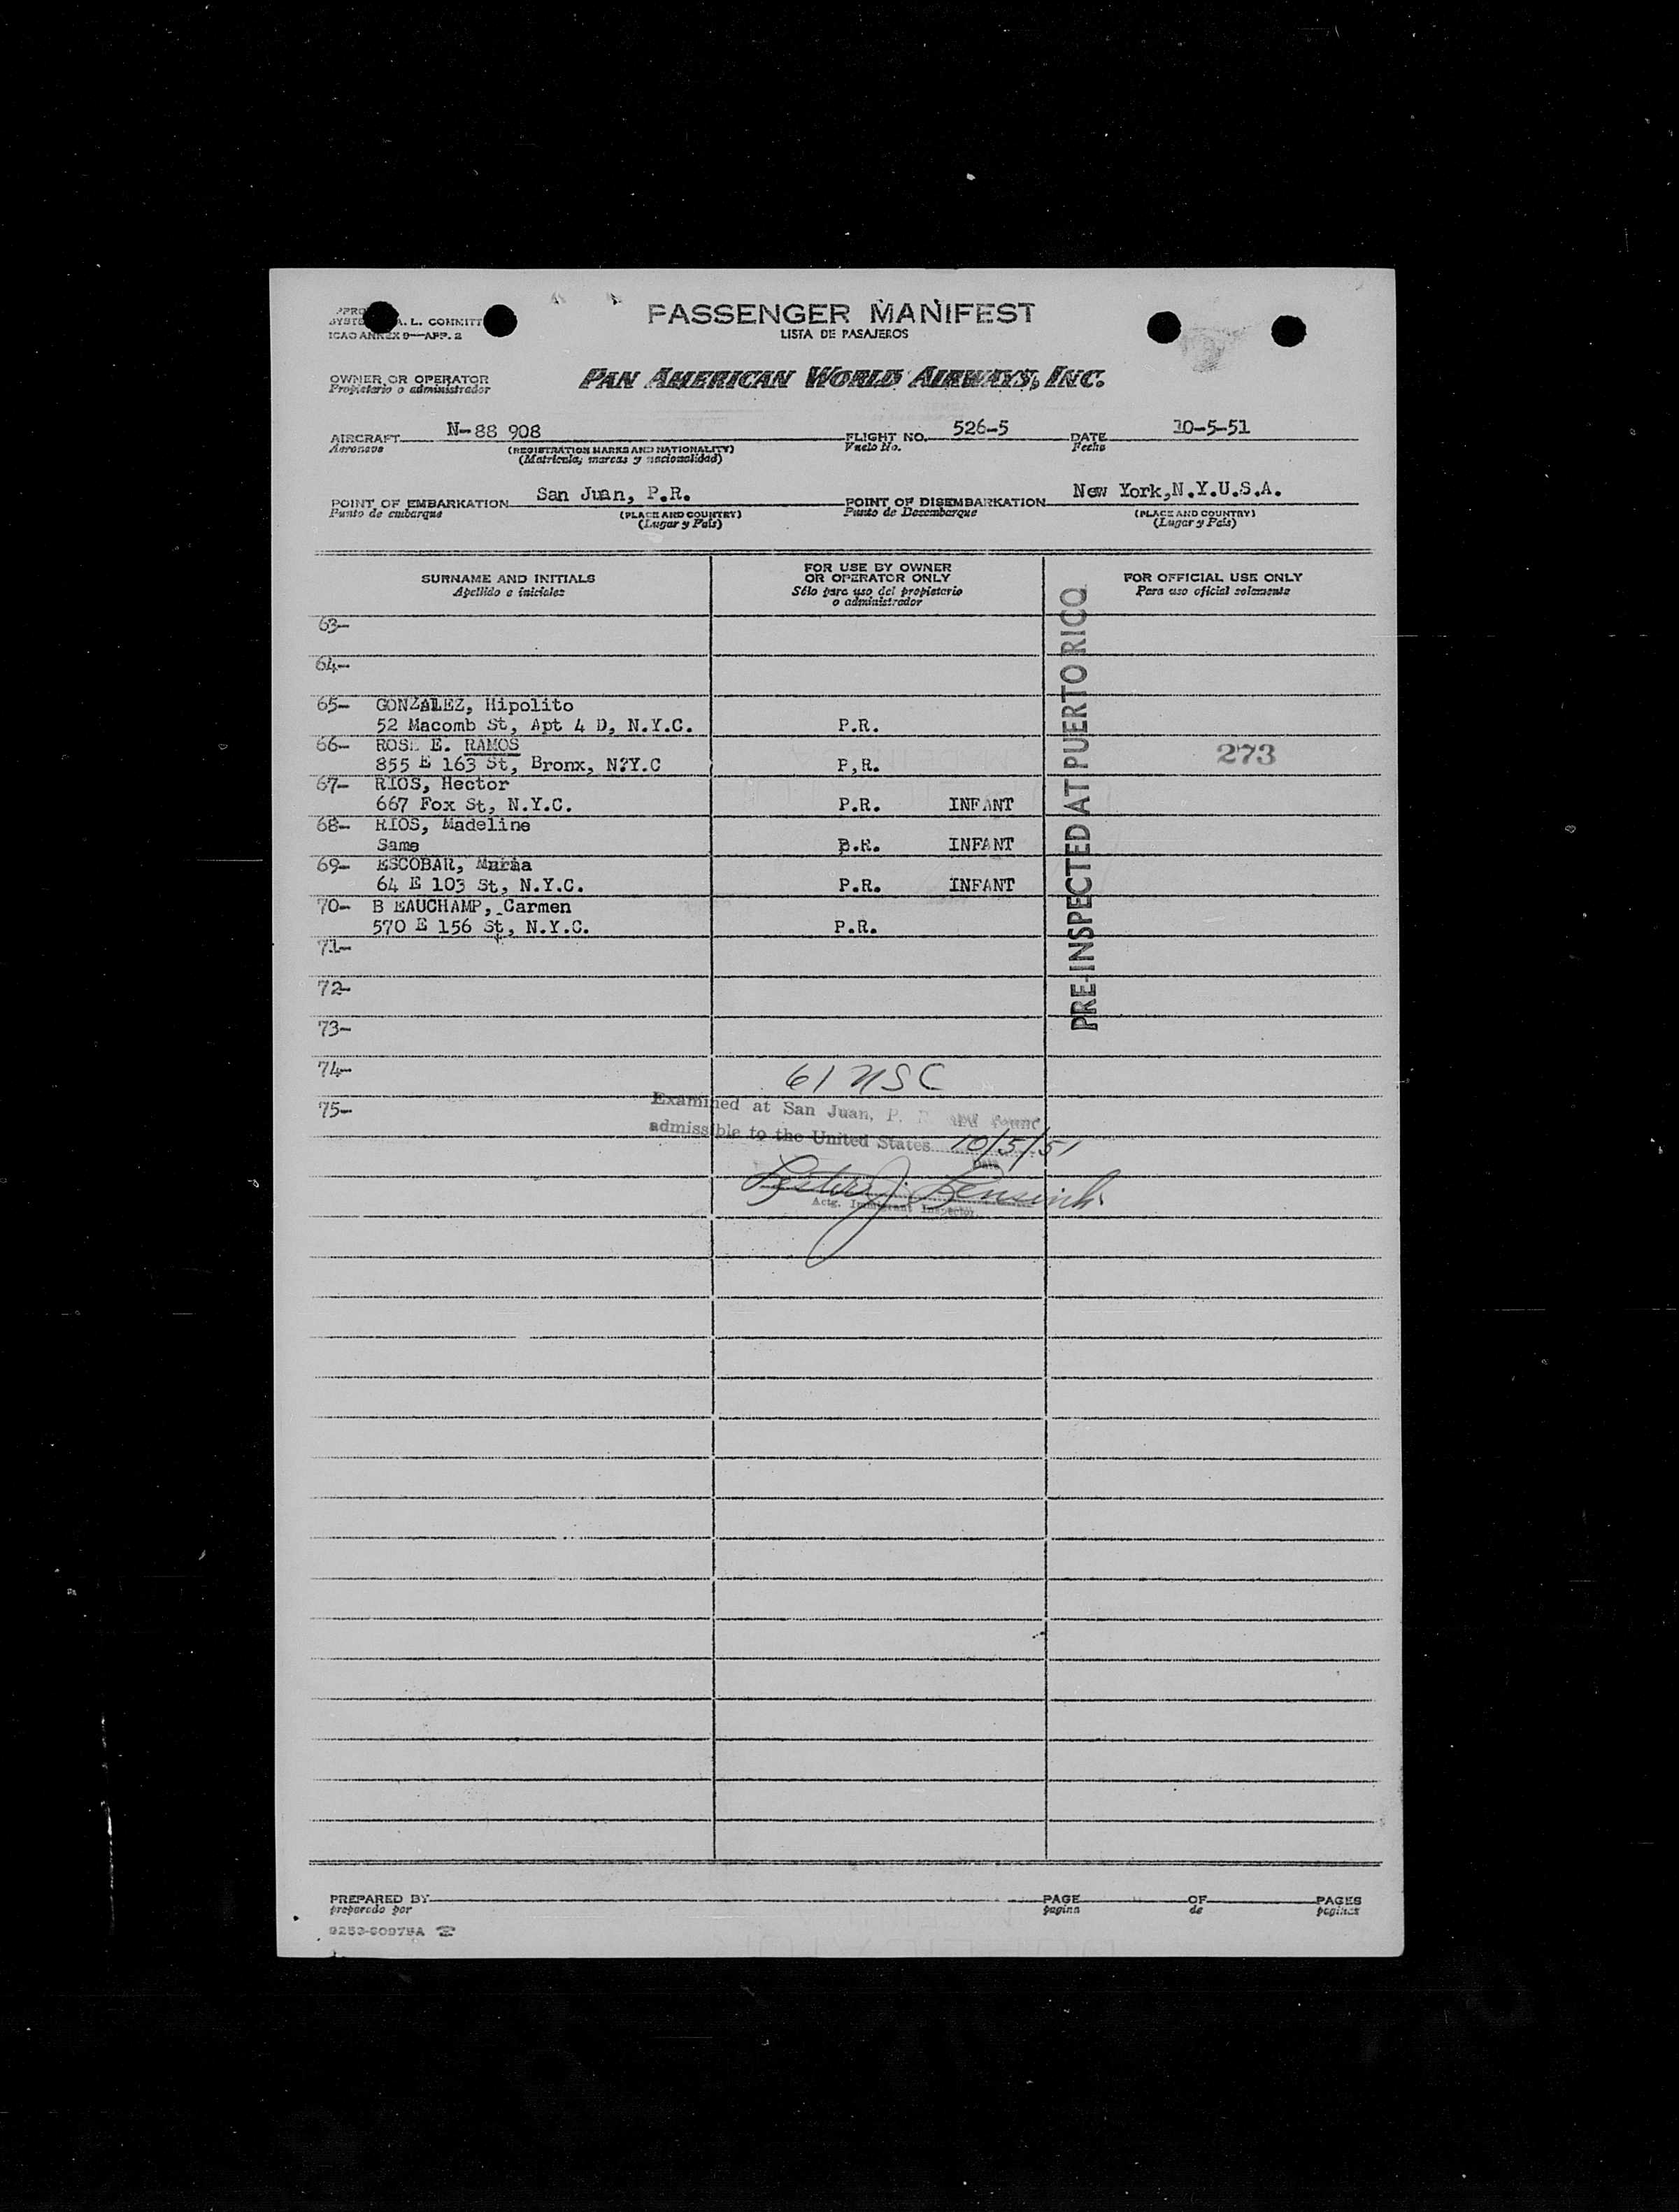 A. L. COMMITT
ICAO ANNEX 9—APP. 2
PASSENGER MANIFEST
LISTA DE PASAJEROS
OWNER OR OPERATOR
Propietario o administrador
PAN AMERICAN WORLD AIRWAYS, INC.
AIRCRAFT N-88 908 FLIGHT NO. 526-5 DATE 10-5-51
Aeronave (REGISTRATION MARKS AND NATIONALITY) Vuelo No. Fecha
(Matricula; marcas y nacionalidad)
POINT OF EMBARKATION San Juan, P.R. POINT OF DISEMBARKATION New York,N.Y.U.S.A.
Punto de embarque (PLACE AND COUNTRY) Punto de Desembarque (PLACE AND COUNTRY)
(Lugar y País) (Lugar y País)
SURNAME AND INITIALS
Apellido e iniciales
FOR USE BY OWNER
OR OPERATOR ONLY
Sólo para uso del propietario
o administrador
FOR OFFICIAL USE ONLY
Para uso oficial solamente
PRE-INSPECTED AT PUERTO RICO
63-
64-
65- GONZALEZ, Hipolito
52 Macomb St, Apt 4 D, N.Y.C. P.R.
66- ROSE E. RAMOS
855 E 163 St, Bronx, N?Y.C P,R. 273
67- RIOS, Hector
667 Fox St, N.Y.C. P.R. INFANT
68- RIOS, Madeline
Same P.R. INFANT
69- ESCOBAR, Maria
64 E 103 St, N.Y.C. P.R. INFANT
70- B EAUCHAMP, Carmen
570 E 156 St, N.Y.C. P.R.
71-
72-
73-
74-
61 USC
75-
Examined at San Juan, P. R. and found
admissible to the United States 10/5/51
Date
Lester J.
Actg. Immigrant Inspector
PREPARED BY PAGE OF PAGES
preparado por pagina de paginas